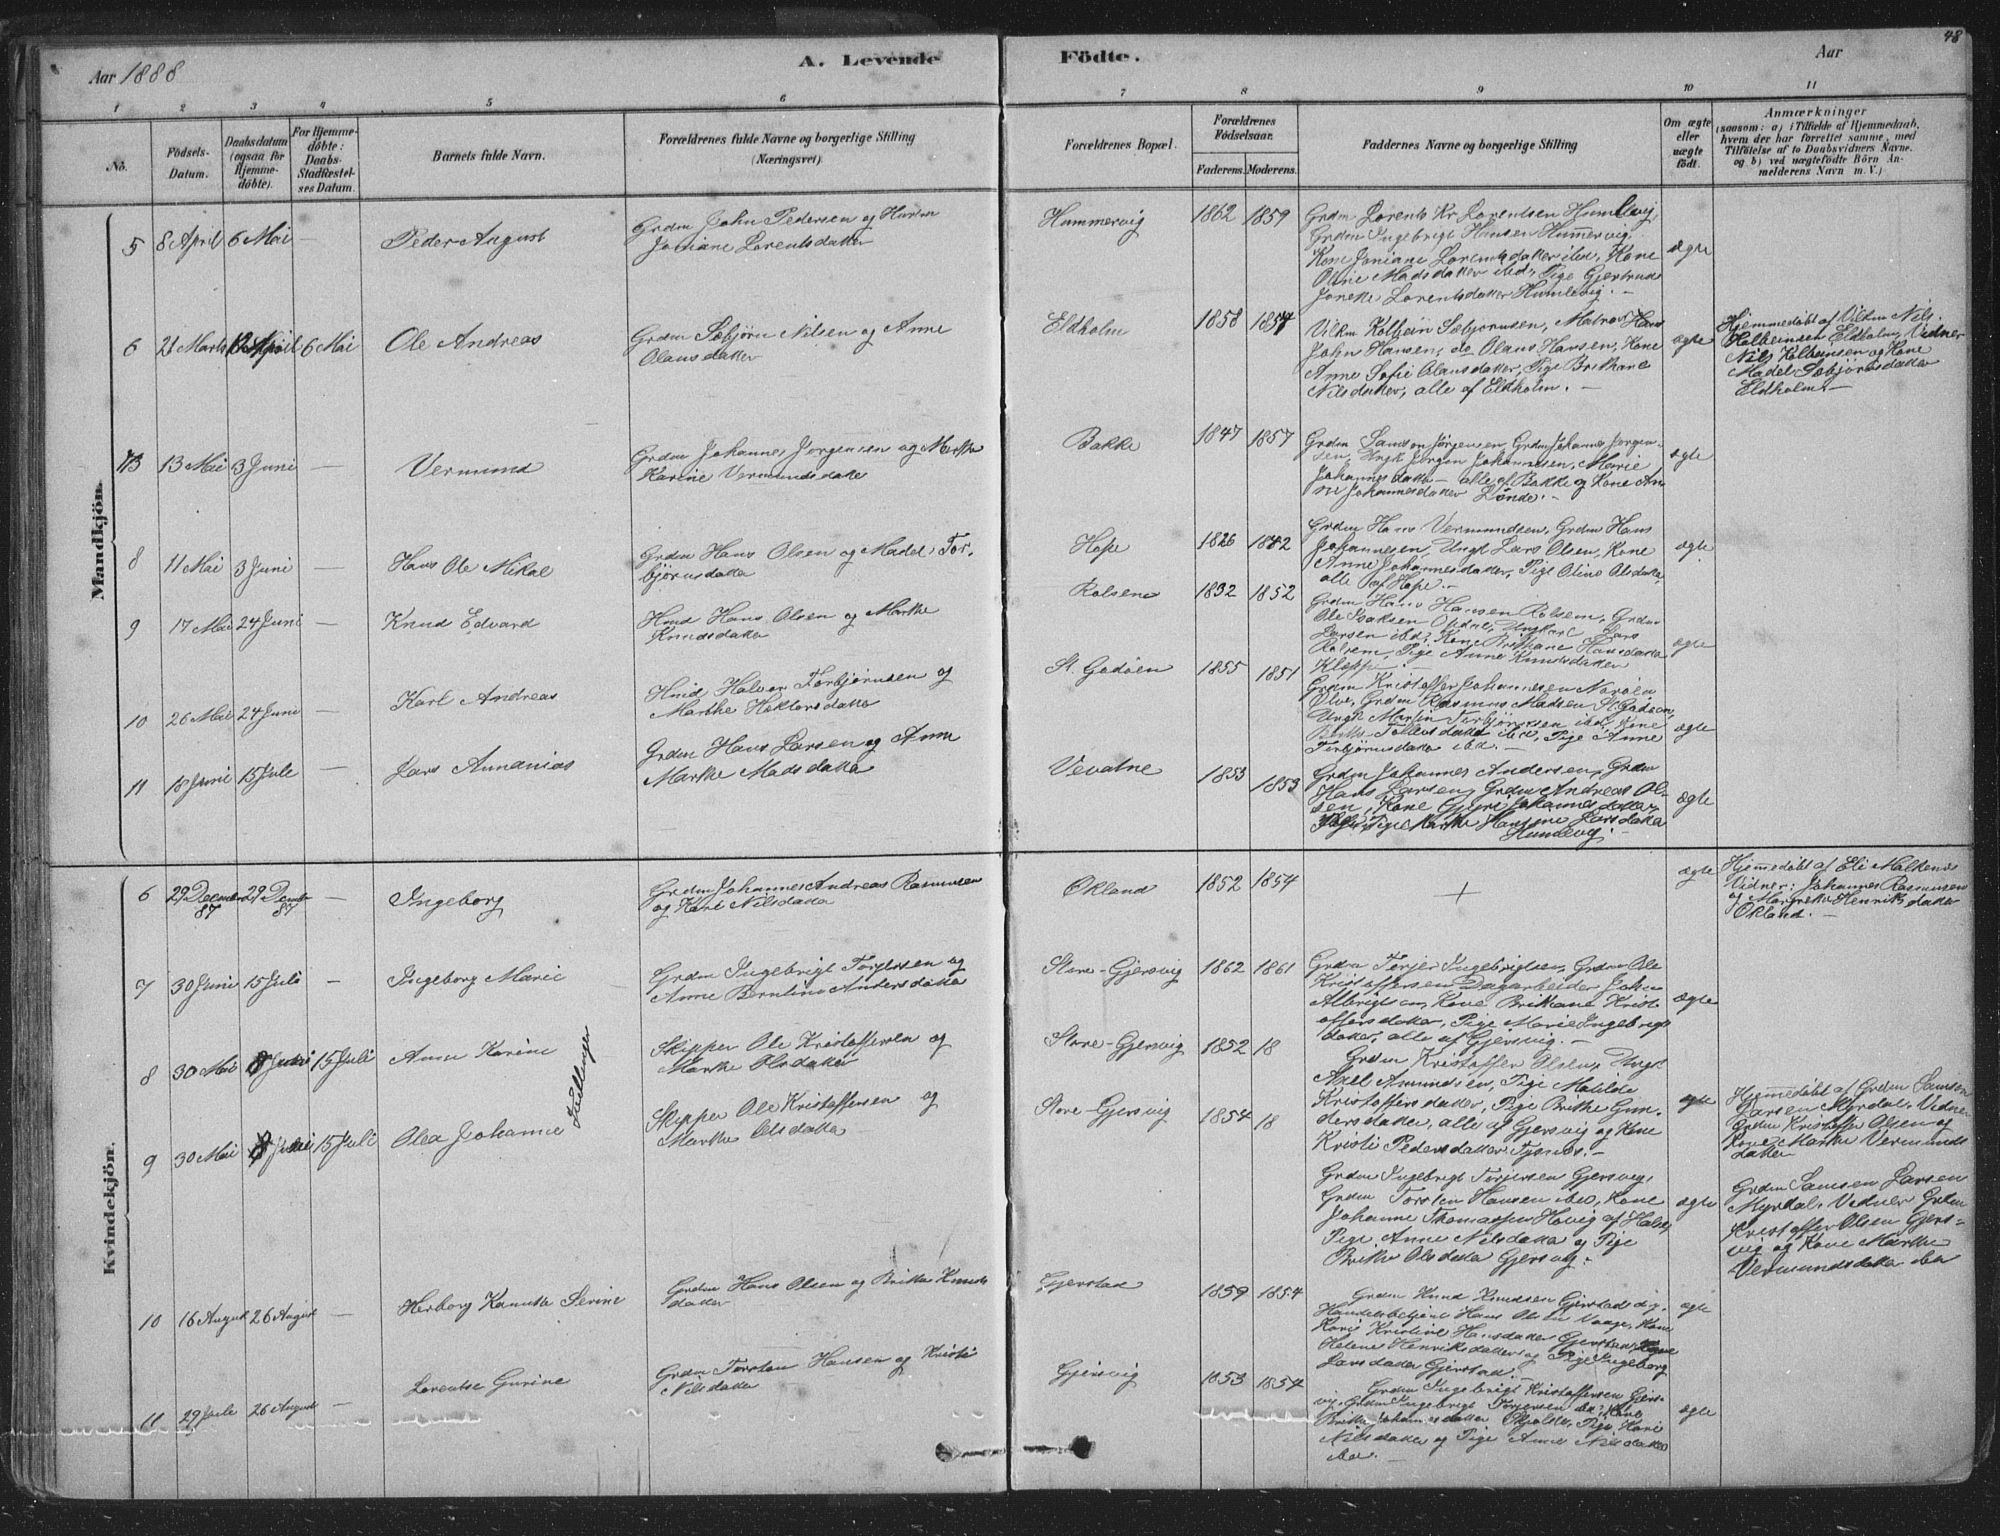 48
Aar 1888
A. Levende
Födte.
Aar
1 2 3 4 5 6 7 8 9 10 11
No.
Födsels-
Datum.
Daabsdatum
(ogsaa for
Hjemme-
döbte).
For Hjemme-
döbte:
Daabs-
Stadfæstel-
ses Datum.
Barnets fulde Navn.
Forældrenes fulde Navne og borgerlige Stilling
(Næringsvei)
Forældrenes Bopæl.
Forældrenes
Födselsaar.
Faderens. Moderens.
Faddernes Navne og borgerlige Stilling
Om ægte
eller
uægte
födt.
Anmærkninger
(saasom: a) i Tilfælde af Hjemmedaab,
hvem der har forrettet samme, med
Tilföielse af to Daabsvidners Navne.
og b) ved uægtefödte Börn An-
melderens Navn m. V.)
Mandkjön.
5 8 April 6 Mai — Peder August
Grdm John Pedersen og Hustru
Joniane Lorentsdatter
Hummervig 1862 1859
Grdm Lorents Kr Lorentsen Humlevig,
Grdm Ingebrigt Hansen Humervig.
Kone Joniane Lorentsdatter ibd, Kone
Oline Madsdatter ibd, Pige Gjertrud
Joneke Lorentsdatter Humlevig. —
ægte
6 21 Marts April 6 Mai Ole Andreas
Grdm Sæbjörn Nilsen og Anne
Olausdatter
Eldholm 1858 1857
Kolbein Sæbjornsen, Matros Hans
John Hansen, do Olaus Hansen, Kone
Anne Sofie Olausdatter, Pige Brithane
Nilsdatter, alle af Eldholm. —
ægte
Hjemmedöbt af Nils
Kolbeinsen Eldholm, Vidner
Nils Kolbeinsen og Kone
Madel Sæbjörnsdatter
Eldholm. —
13 Mai 3 Juni — Vermund
Grdm Johannes Jorgensen og Marthe
Karine Vermundsdatter
Bakke 1847 1857
Grdm Samson Jörgensen, Grdm Johannes Jorgen-
sen, Ungk Jörgen Johannesen, Marie
Johannesdatter — alle af Bakke og Kone An-
ne Johannesdatter Lönde. —
ægte
8 11 Mai 3 Juni — Hans Ole Mikal
Grdm Hans Olsen og Madel Tor-
björnsdatter
Hope 1826 1842
Grdm Hans Vermundsen, Grdm Hans
Johannesen, Ungk Lars Olsen, Kone
Anne Johannesdatter, Pige Oline Olsdatter
alle af Hope. —
ægte
9 17 Mai 24 Juni — Knud Edvard
Hmd Hans Olsen og Marthe
Knudsdatter
Rolsene 1832 1852
Grdm Hans Hansen Rolsem, Grdm
Ole Isaksen Opdal, Ungkarl Lars
Larsen ibd, Kone Brithane Hansdatter
Rolsem, Pige Anne Knudsdatter
Kleppe —
ægte
10 26 Mai 24 Juni — Karl Andreas
Hmd Halvor Torbjörnsen og
Marthe Hektorsdatter
St. Godöen 1855 1851
Grdm Kristoffer Johannesen Noröen
Ølve, Grdm Rasmus Madsen St. Godöen,
Ungk Martin Torbjörnsen ibd, Kone
Brithe Tollevsdatter ibd, Pige Anne
Torbjörnsdatter ibd. —
ægte
11 18 Juni 15 Juli — Lars Annanias
Grdm Hans Larsen og Anne
Marthe Madsdatter
Vevatne 1853 1853
Grdm Johannes Andersen, Grdm
Hans Larsen, Grdm Andreas Ol-
sen, Kone Gjøri Johannesdatter,
Pige Marthe Hansine Larsdatter
Humlevig. —
ægte
Kvindekjön.
6 29 Decmbr 87 29 Decmbr 87 — Ingeborg
Grdm Johannes Andreas Rasmusen
og Kari Nilsdatter
Økland 1852 1854
+
ægte
Hjemedöbt af Eli
Vidner: Johannes Rasmusen
og Margrethe Henriksdatter
Økland. —
7 30 Juni 15 Juli — Ingeborg Marie
Grdm Ingebrigt Torjersen og
Anne Berntine Andersdatter
Store-Gjersvig 1862 1861
Grdm Torjer Ingebrigtsen, Grdm Ole
Kristoffersen Dagarbeider John
Albrigtsen, Kone Brithane Krist-
offersdatter, Pige Marie Ingebrigts
datter, alle af Gjersvig. —
ægte
8 30 Mai 15 Juli Anna Karine
Tvillinger
Skipper Ole Kristoffersen og
Marthe Olsdatter
Store-Gjersvig 1852 18
Grdm Kristoffer Olsen, Ungk
Axel Amundsen, Pige Matilde
Kristoffersdatter, Pige Brithe Gun-
dersdatter, alle af Gjersvig og Kone
Kristi Pedersdatter Tysnes. —
ægte
Hjemmedöbt af Grdm Samson
Larsen Myrdal, Vidne
Grdm Kristoffer Olsen og
Kone Marthe Vermunds
datter
9 30 Mai 15 Juli Olea Johanne
Skipper Ole Kristoffersen og
Marthe Olsdatter
Store-Gjersvig 1854 18
Grdm Ingebrigt Torjersen Gjersvig,
Grdm Torsten Hansen ibd, Kone
Johanne Thomasen Hovig af Halse,
Pige Anne Nilsdatter og Pige
Brithe Olsdatter Gjersvig. —
ægte
Grdm Samson Larsen
Myrdal, Vidner Grdm
Kristoffer Olsen Gjers-
vig og Kone Marthe
Vermundsdatter ibd
10 16 August 26 August — Herborg Kanutte Serine
Grdm Hans Olsen og Britha Knuds
datter
Gjerstad 1859 1854
Grdm Knud Knudsen Gjerstad og
Handelsbetjent Hans Olsen Vaage, Kone
Kari Kristine Hansdatter Gjerstad, Kone
Helene Henriksdatter og Pige Ingeborg
Larsdatter Gjerstad. —
ægte
11 29 Juli 26 August — Lorentse Gurine
Grdm Torsten Hansen og Kristi
Nilsdatter
Gjersvig 1853 1854
Grdm Ingebrigt Kristoffersen Gjers-
vig, Grdm Ingebrigt Torjersen ibd, Kone
Brithe Johannesdatter Skjolde, Pige Kari
Nilsdatter og Pige Anne Nilsdatter
ibd. —
ægte